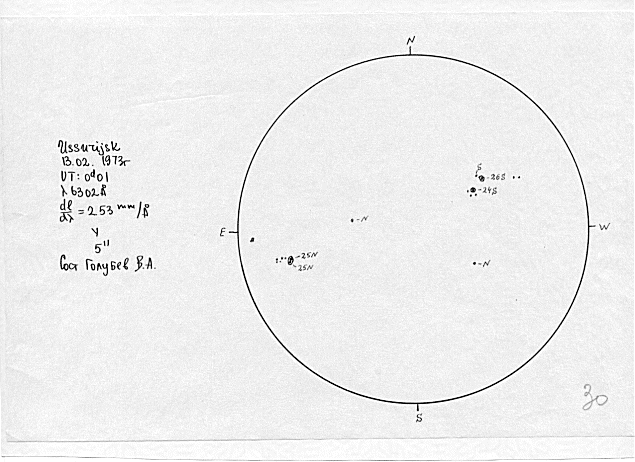 Ussurijsk
13.02. 1973г
UT: 0ᵈ01
λ 6302Å
dl/dλ = 2.53 mm/Å
V
5"
Сост Голубев В.А.
N
S
-26S
-24S
-N
E
W
-25N
-25N
-N
S
30